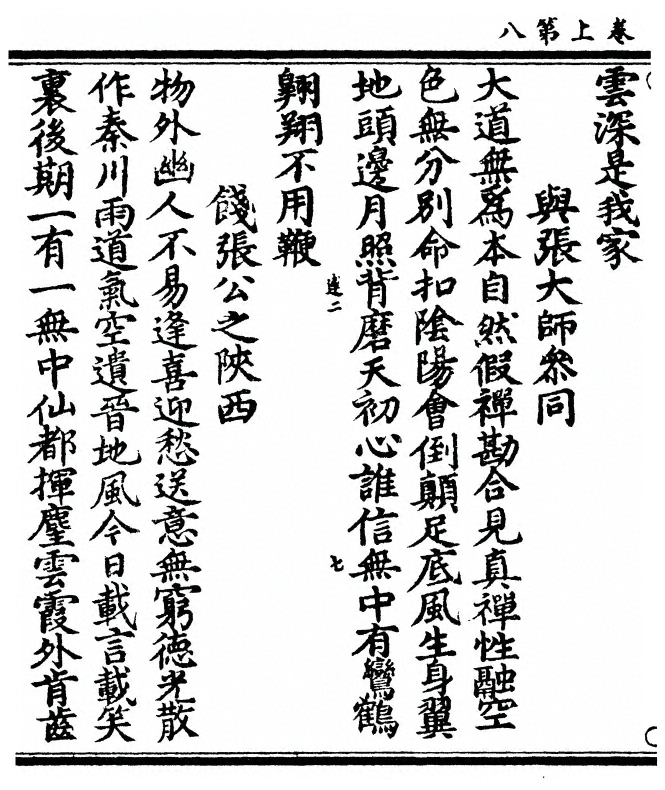 卷上第八
雲深是我家
與張大師叅同
大道無爲本自然假禪勘合見真禪性融空
色無分別命扣陰陽會倒顛足底風生身翼
地頭邊月照背磨天初心誰信無中有鸞鶴
翱翔不用鞭
餞張公之陝西
物外幽人不易逢喜迎愁送意無窮德光散
作秦川雨道氣空遺晉地風今日載言載笑
裏後期一有一無中仙都揮麈雲霞外肯齒
二
七